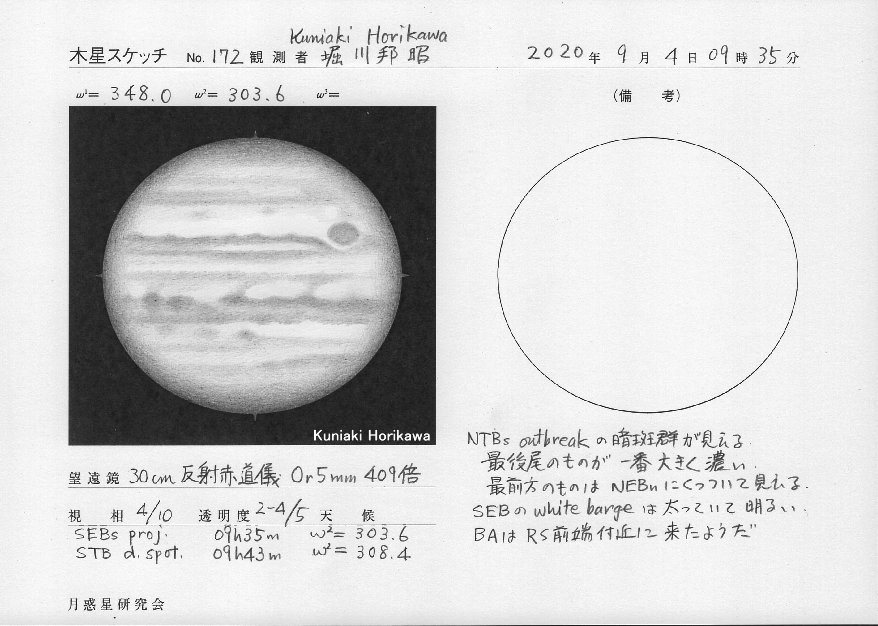 Kuniaki Horikawa
木星スケッチ No. 172 観測者 堀川邦昭
2020年 9月 4日 09時 35分
ω¹= 348.0 ω²= 303.6 ω³=
(備 考)
Kuniaki Horikawa
望遠鏡 30cm 反射赤道儀 Or5mm 409倍
視 相 4/10 透明度 2-4/5 天 候
SEBs proj. 09h35m ω²= 303.6
STB d. spot. 09h43m ω²= 308.4
NTBs outbreakの暗斑群が見える.
最後尾のものが一番大きく濃い.
最前方のものはNEBnにくっついて見える.
SEBのwhite bargeは太っていて明るい.
BAはRS前端付近に来たようだ
月惑星研究会